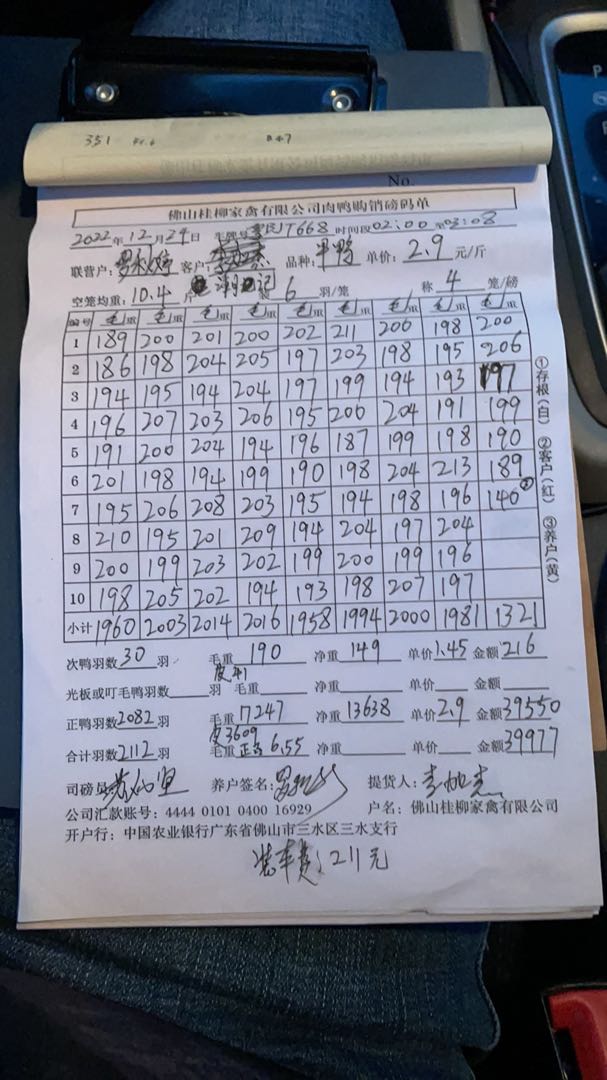 351
847
No.
佛山桂柳家禽有限公司肉鸭购销磅码单
2022年12月24日 车牌号 7668 时间段02:00至03:08
联营户: 客户: 品种:半鸭 单价:2.9元/斤
空笼均重:10.4斤 装6羽/笼 称4笼/磅
编号 毛重 毛重 毛重 毛重 毛重 毛重 毛重 毛重 毛重
1 189 200 201 200 202 211 206 198 200
2 186 198 204 205 197 203 198 195 206
3 194 195 194 204 197 199 194 193 197
4 196 207 203 206 195 200 204 191 199
5 191 200 204 194 196 187 199 198 190
6 201 198 194 199 190 198 204 213 189
7 195 206 208 203 195 194 198 196 140
8 210 195 201 209 194 204 197 204
9 200 199 203 202 199 200 199 196
10 198 205 202 194 193 198 207 197
小计 1960 2003 2014 2016 1958 1994 2000 1981 1321
①存根(白) ②客户(红) ③养户(黄)
次鸭羽数30羽 毛重190 净重149 单价1.45 金额216
皮41
光板或叮毛鸭羽数 羽 毛重 净重 单价 金额
正鸭羽数2082羽 毛重17247 净重13638 单价2.9 金额39550
皮3609
合计羽数2112羽 毛重正各6.55 净重 单价 金额39977
司磅员 养户签名: 提货人:
公司汇款账号: 4444 0101 0400 16929 户名: 佛山桂柳家禽有限公司
开户行: 中国农业银行广东省佛山市三水区三水支行
装车费:211元